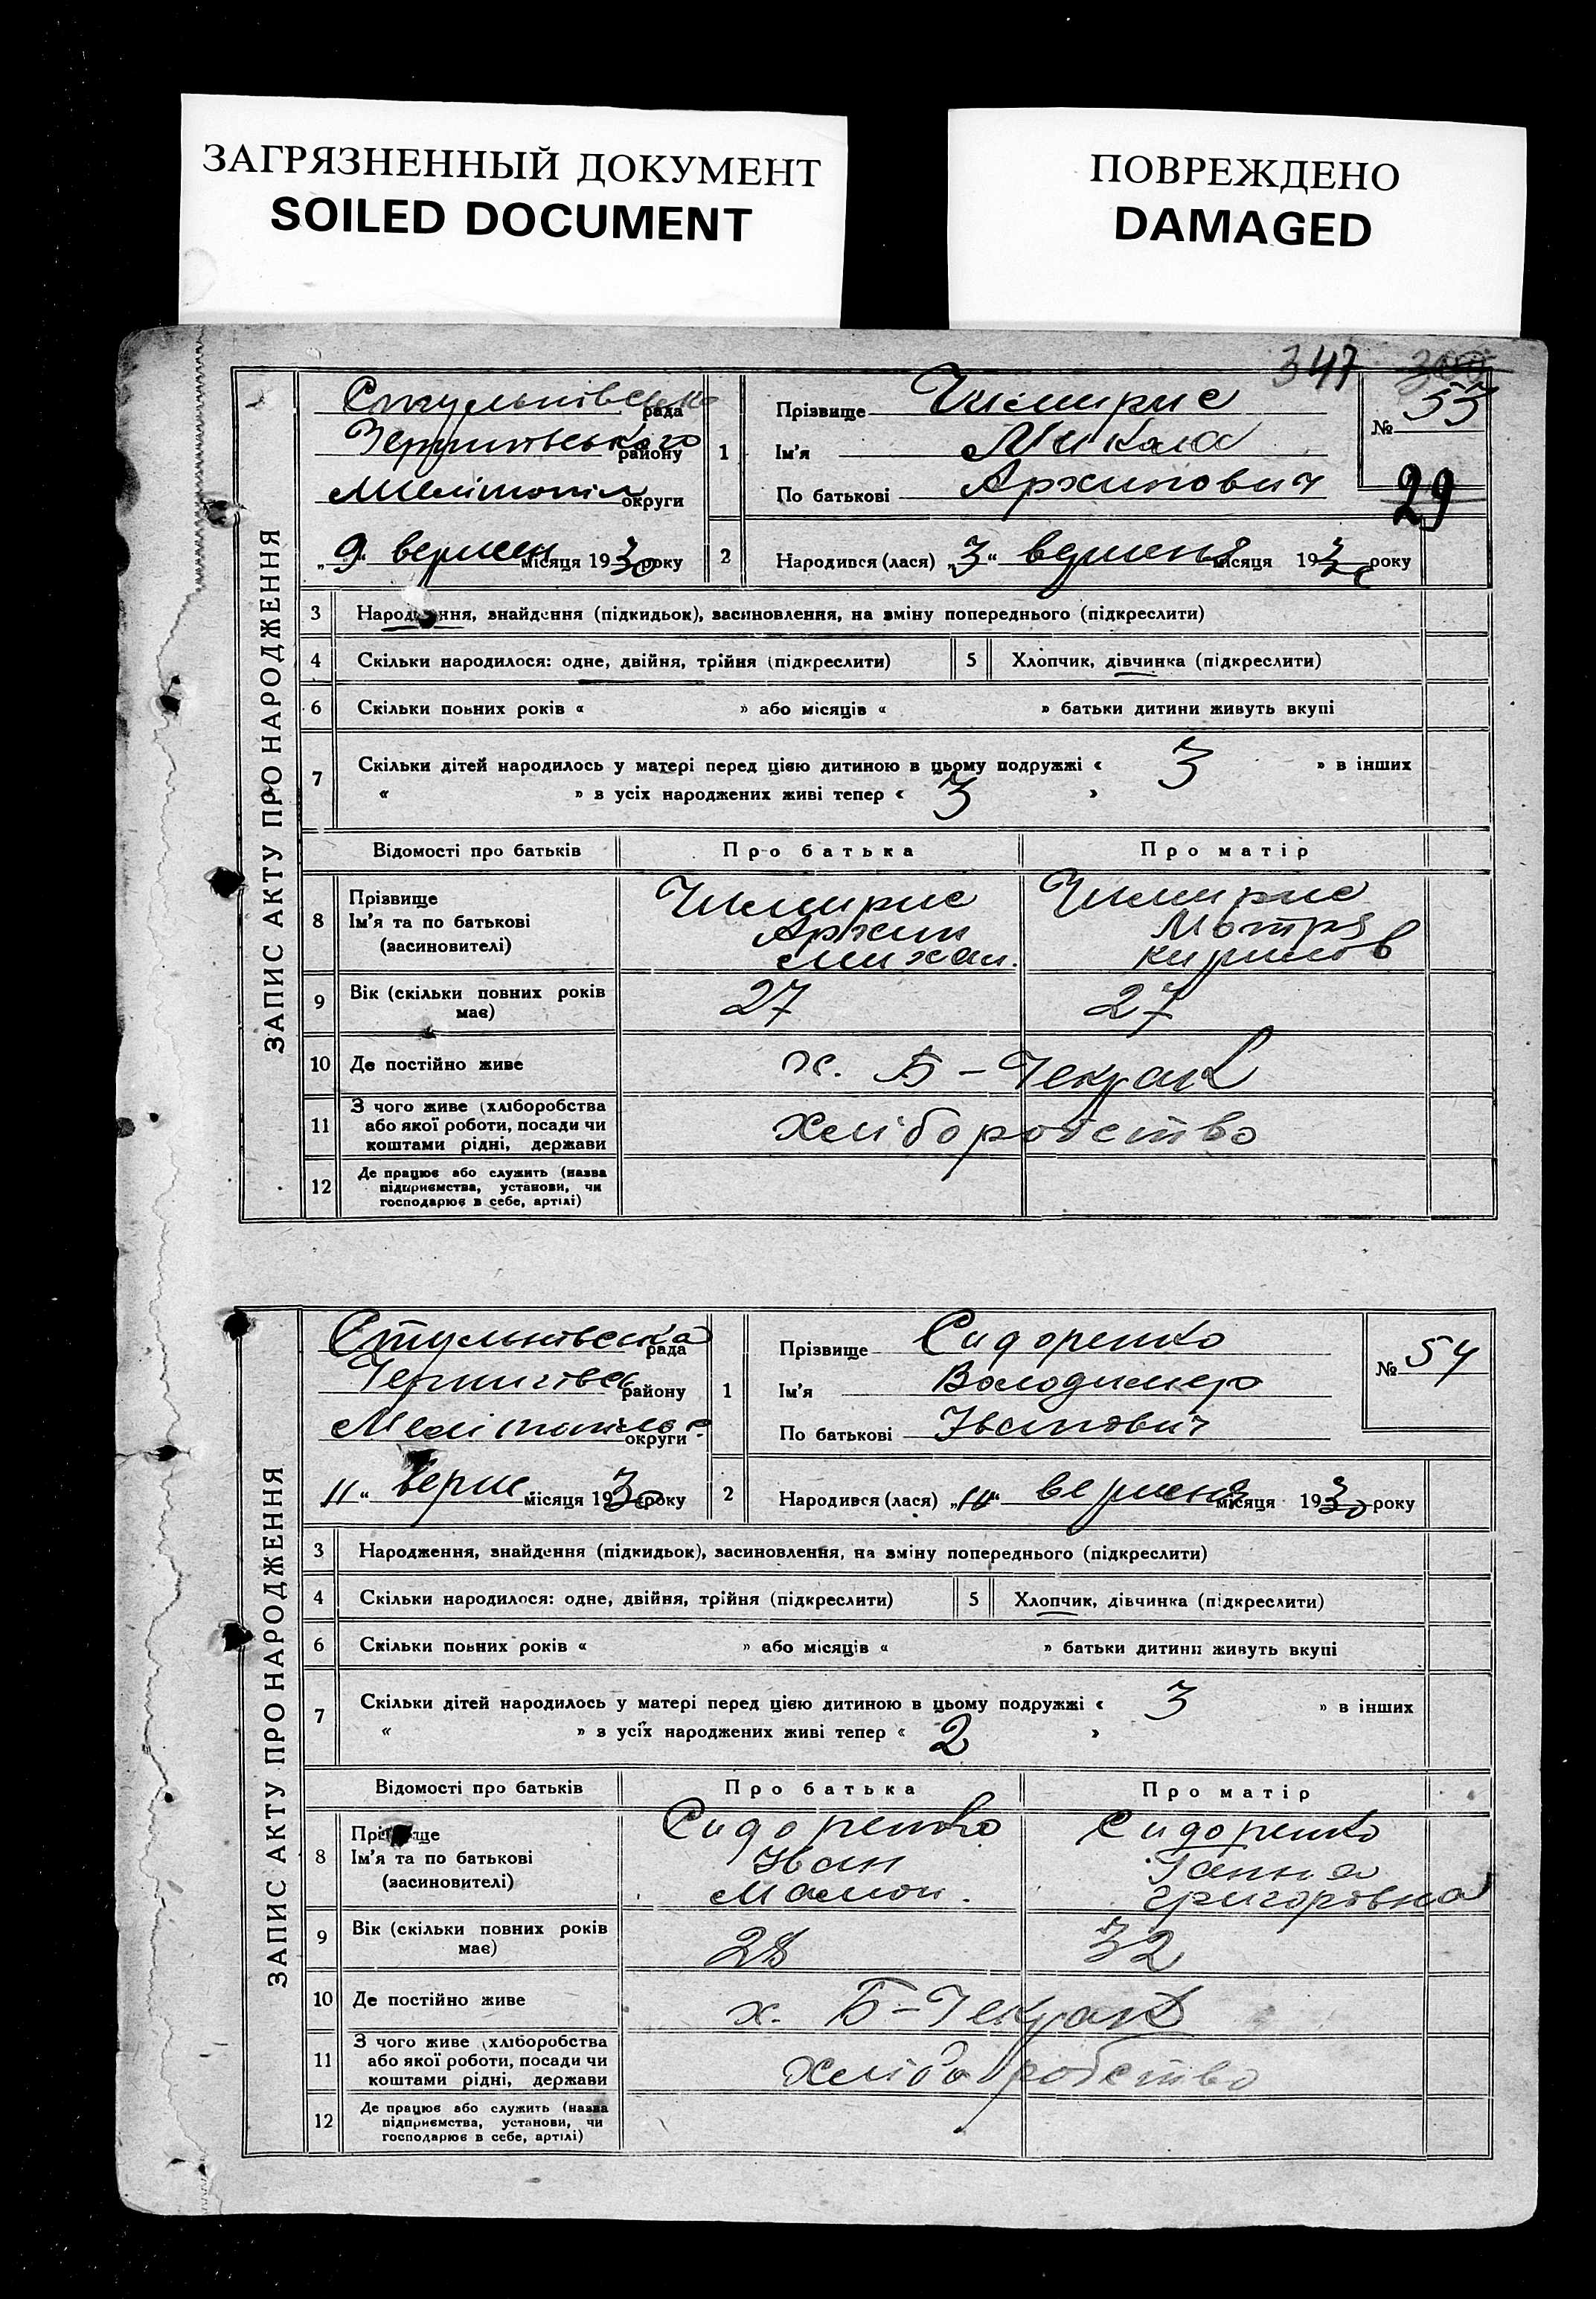 ЗАГРЯЗНЕННЫЙ ДОКУМЕНТ
SOILED DOCUMENT
ПОВРЕЖДЕНО
DAMAGED
347
ЗАПИС АКТУ ПРО НАРОДЖЕННЯ
рада
району
округи
„9“ вересн місяця 1930 року
1
Прізвище Чимирис
Ім'я Микола
По батькові Архипович
№ 53
29
2
Народився (лася) „3“ вересня місяця 1930 року
3 Народження, знайдення (підкидьок), засиновлення, на зміну попереднього (підкреслити)
4 Скільки народилося: одне, двійня, трійня (підкреслити)
5 Хлопчик, дівчинка (підкреслити)
6 Скільки повних років « » або місяців « » батьки дитини живуть вкупі
7 Скільки дітей народилось у матері перед цією дитиною в цьому подружжі « 3 » в інших
« » в усіх народжених живі тепер « 3 »
Відомості про батьків Про батька Про матір
8 Прізвище Чимирис Чимирис
Ім'я та по батькові Архип Мотря
(засиновителі) Михаи.
9 Вік (скільки повних років має) 27 27
10 Де постійно живе х. Б-Чекрак
11 З чого живе (хліборобства
або якої роботи, посади чи
коштами рідні, держави
хліборобство
12 Де працює або служить (назва
підприємства, установи, чи
господарює в себе, артілі)
ЗАПИС АКТУ ПРО НАРОДЖЕННЯ
Стульнівська рада
Чернигівсь району
округи
11“ верше місяця 1930 року
1
Прізвище Сидоренко
Ім'я Володимер
По батькові Іванович
№ 54
2
Народився (лася) „10“ вересня місяця 1930 року
3 Народження, знайдення (підкидьок), засиновлення, на зміну попереднього (підкреслити)
4 Скільки народилося: одне, двійня, трійня (підкреслити)
5 Хлопчик, дівчинка (підкреслити)
6 Скільки повних років « » або місяців « » батьки дитини живуть вкупі
7 Скільки дітей народилось у матері перед цією дитиною в цьому подружжі « 3 » в інших
« » в усіх народжених живі тепер « 2 »
Відомості про батьків Про батька Про матір
8 Прізвище Сидоренко Сидоренко
Ім'я та по батькові Іван Ганна
(засиновителі) Григоровна
9 Вік (скільки повних років має) 28 32
10 Де постійно живе х. Б-Чекрак
11 З чого живе (хліборобства
або якої роботи, посади чи
коштами рідні, держави
хліборобство
12 Де працює або служить (назва
підприємства, установи, чи
господарює в себе, артілі)